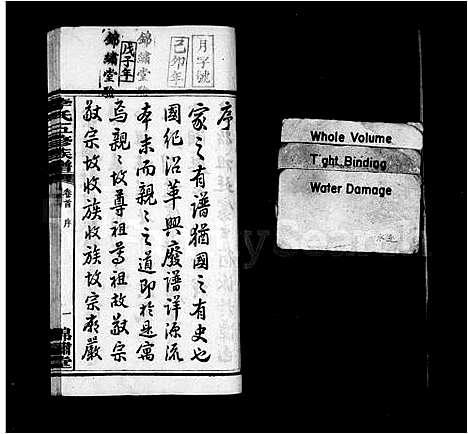 月字號
己卯年
錦繡堂驗
戊子年
錦繡堂驗
序
家之有譜猶國之有史也
國紀沿革興廢譜詳源流
本末而親親之道即於是寓
焉親親故尊祖尊祖故敬宗
敬宗故收族收族故宗廟嚴
氏五修族譜
卷首 序
一
錦繡堂
Whole Volume
Tight Binding
Water Damage